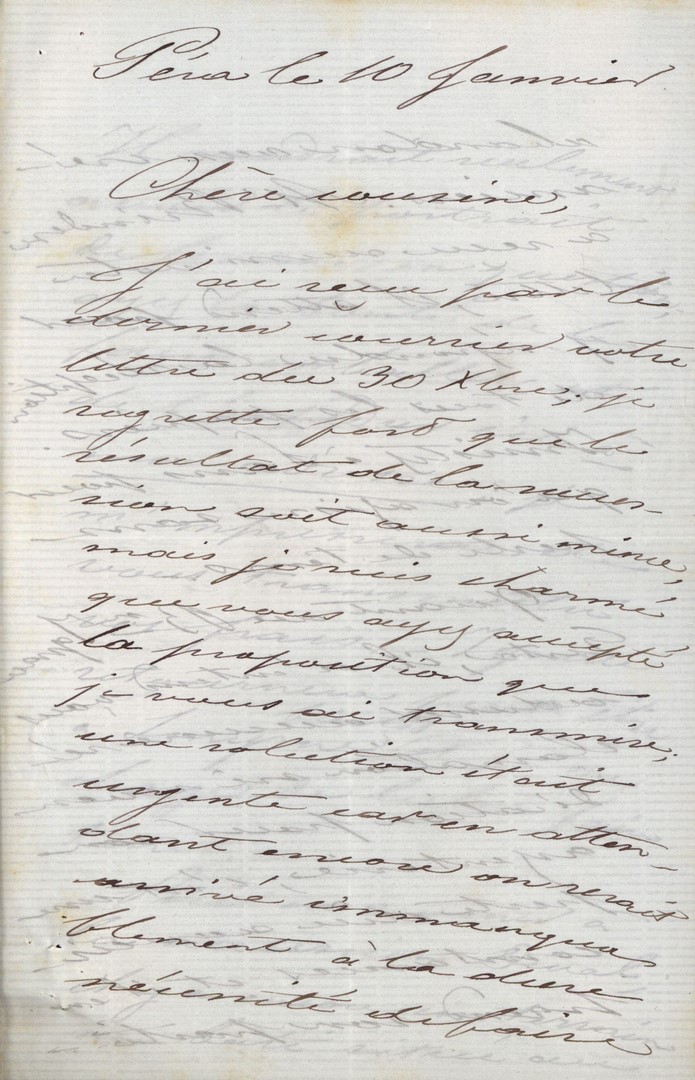 Péra le 10 Janvier
Chère cousine,
J'ai reçu par le
dernier courrier votre
lettre du 30 Xbre; je
regrette fort que le
résultat de la succes-
sion soit aussi mince,
mais je suis charmé
que vous ayez accepté
la proposition que
je vous ai transmise;
une solution était
urgente car en atten-
dant encore on serait
arrivé immanqua
blement à la dure
nécessité de faire